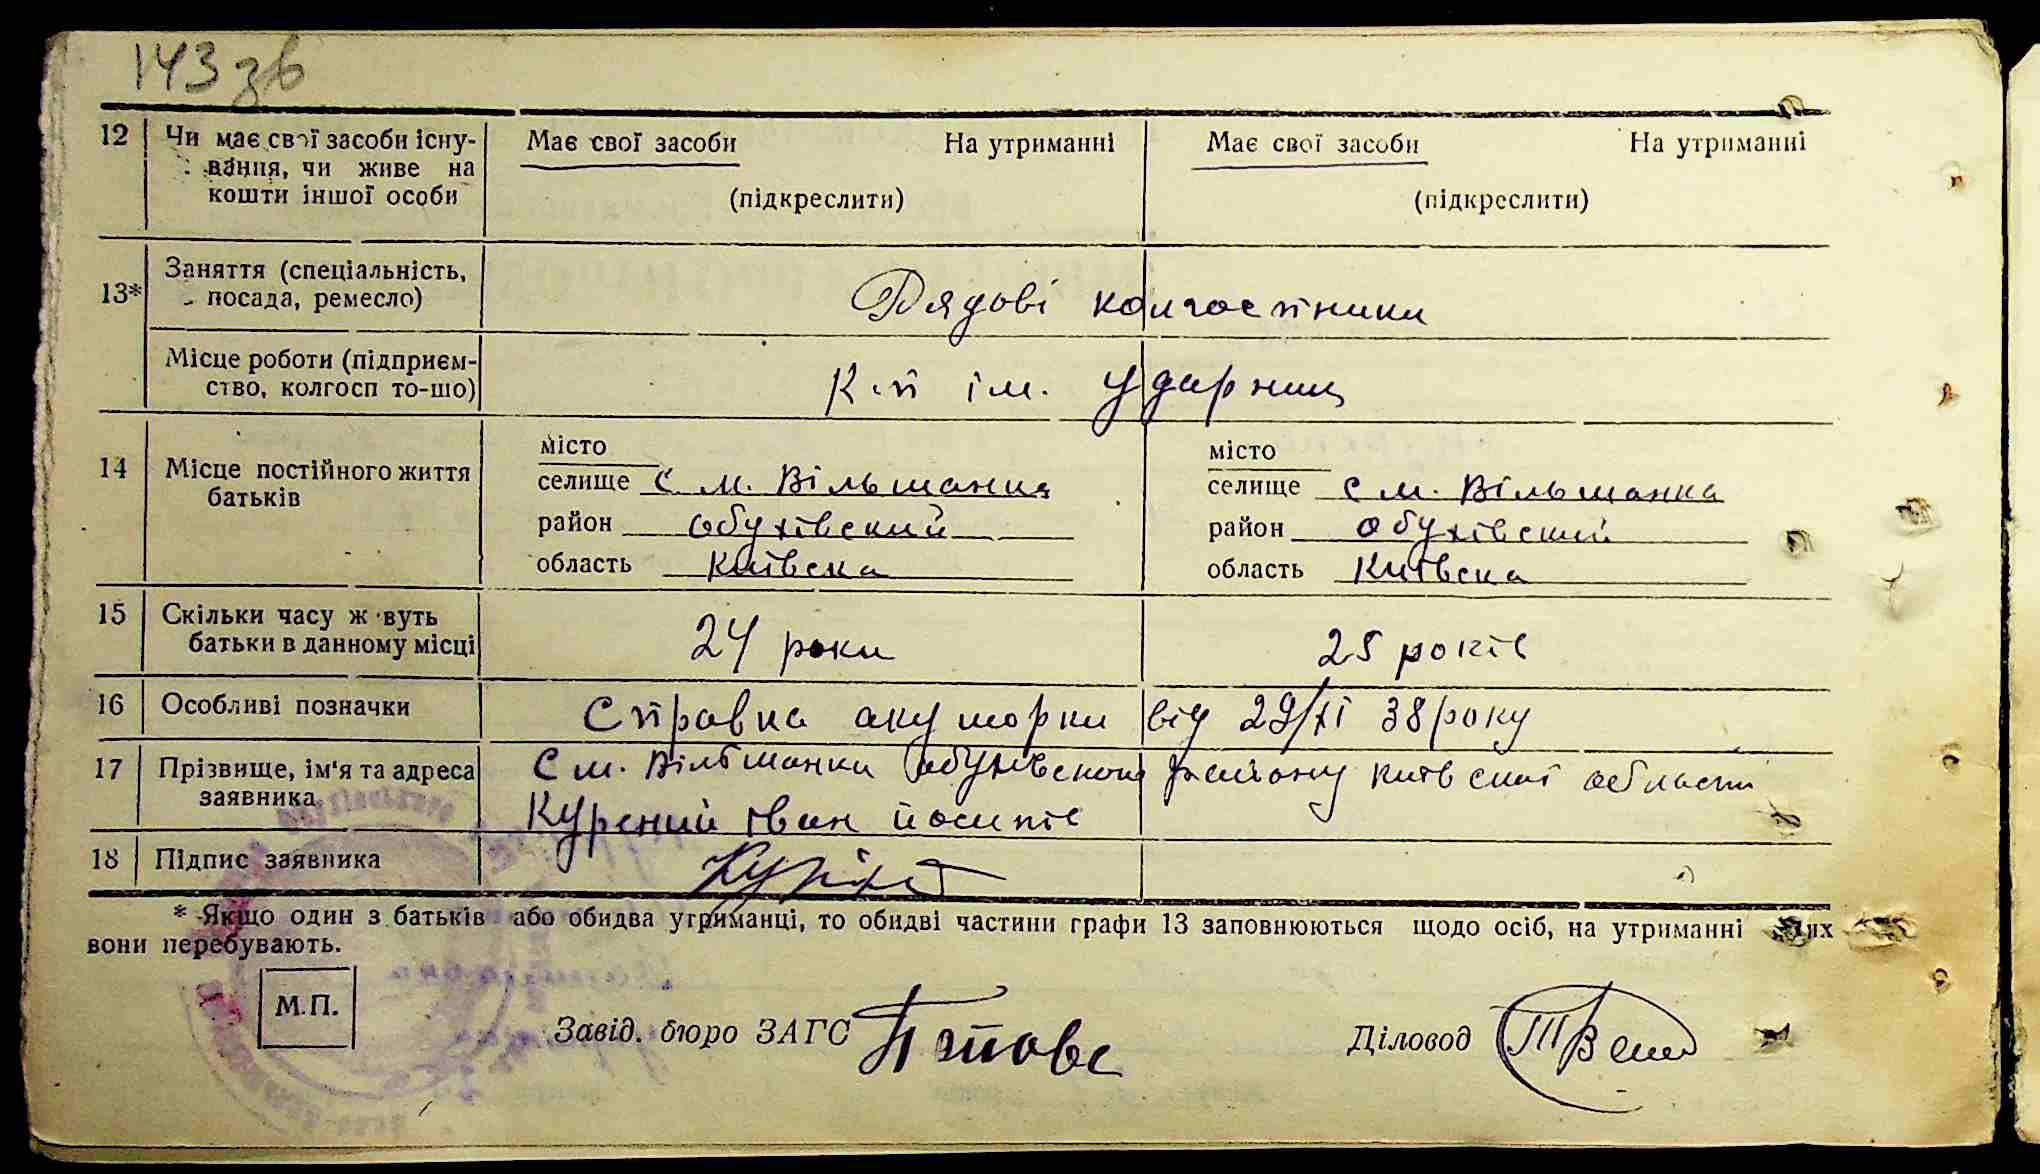 143 зв
12 Чи має свої засоби існу- Має свої засоби На утриманні Має свої засоби На утриманні
вання, чи живе на
кошти іншої особи (підкреслити) (підкреслити)
Заняття (спеціальність,
13* посада, ремесло) Рядові колгоспники
Місце роботи (підприєм-
ство, колгосп то-що) К-п ім. Ударниц
місто місто
14 Місце постійного життя селище с м. Вільшанка селище с м. Вільшанка
батьків район Обухівский район Обухівский
область Київска область Київска
15 Скільки часу ж вуть
батьки в данному місці 24 роки 25 років
16 Особливі позначки Справка акушорки від 29/XI 38 року
17 Прізвище, ім'я та адреса с м. Вільшанки Обухівского району Київскої области
заявника Курений Іван йосипів
18 Підпис заявника
* Якщо один з батьків або обидва утриманці, то обидві частини графи 13 заповнюються щодо осіб, на утриманні яких
вони перебувають.
М.П.
Завід. бюро ЗАГС Діловод